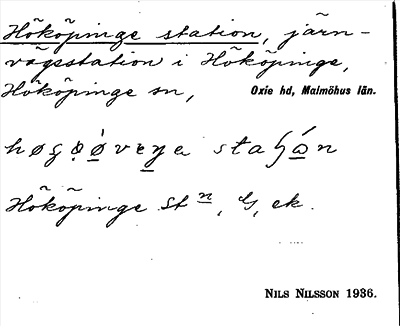 Hököpinge station, järn-
vägsstation i Hököpinge,
Hököpinge sn, Oxie hd, Malmöhus län.
Hököpinge Stn, G, ek.
Nils Nilsson 1936.